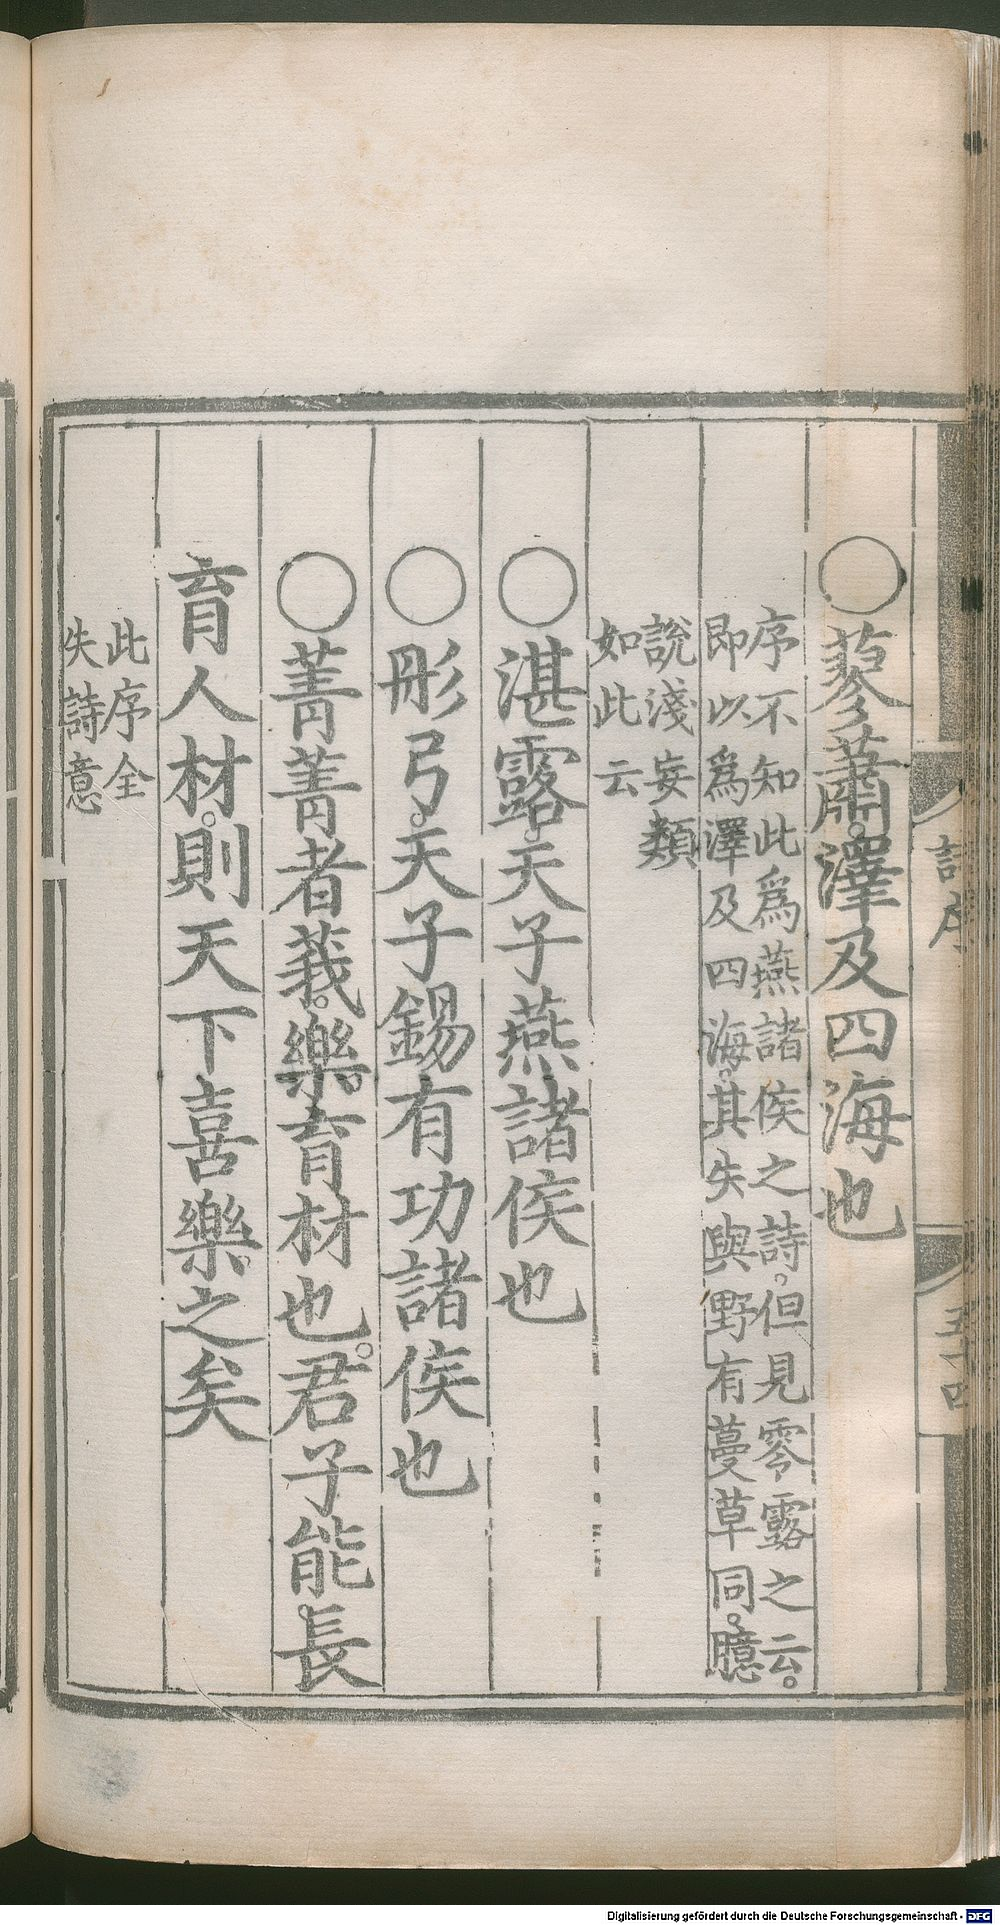 ○蓼蕭。澤及四海也
序不知此爲燕諸侯之詩。但見零露之云。
即以爲澤及四海。其失與野有蔓草同。臆
說淺妄類
如此云
○湛露。天子燕諸侯也
○彤弓。天子錫有功諸侯也
○菁菁者莪。樂育材也。君子能長
育人材。則天下喜樂之矣
此序全
失詩意
Digitalisierung gefördert durch die Deutsche Forschungsgemeinschaft - DFG